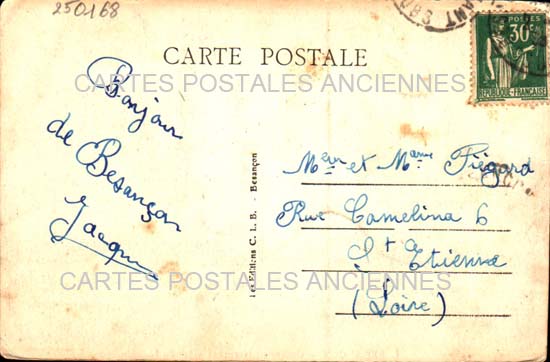 250168
CARTE POSTALE
POSTES
30c
RÉPUBLIQUE FRANÇAISE
CARTES POSTALES ANCIENNES
Bonjour
de Besançon
Jacques
Les Editions C. L. B. - Besançon
Meur et Mame Fiégard
Rue Camelina 6
St e Etienne
(Loire)
CARTES POSTALES ANCIENNES